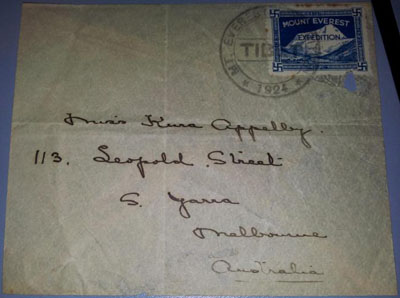 MOUNT EVEREST
EXPEDITION
MT. EVEREST
1924
Miss Kura Appelby.
113. Leopold Street
S. Yarra
Melbourne
Australia